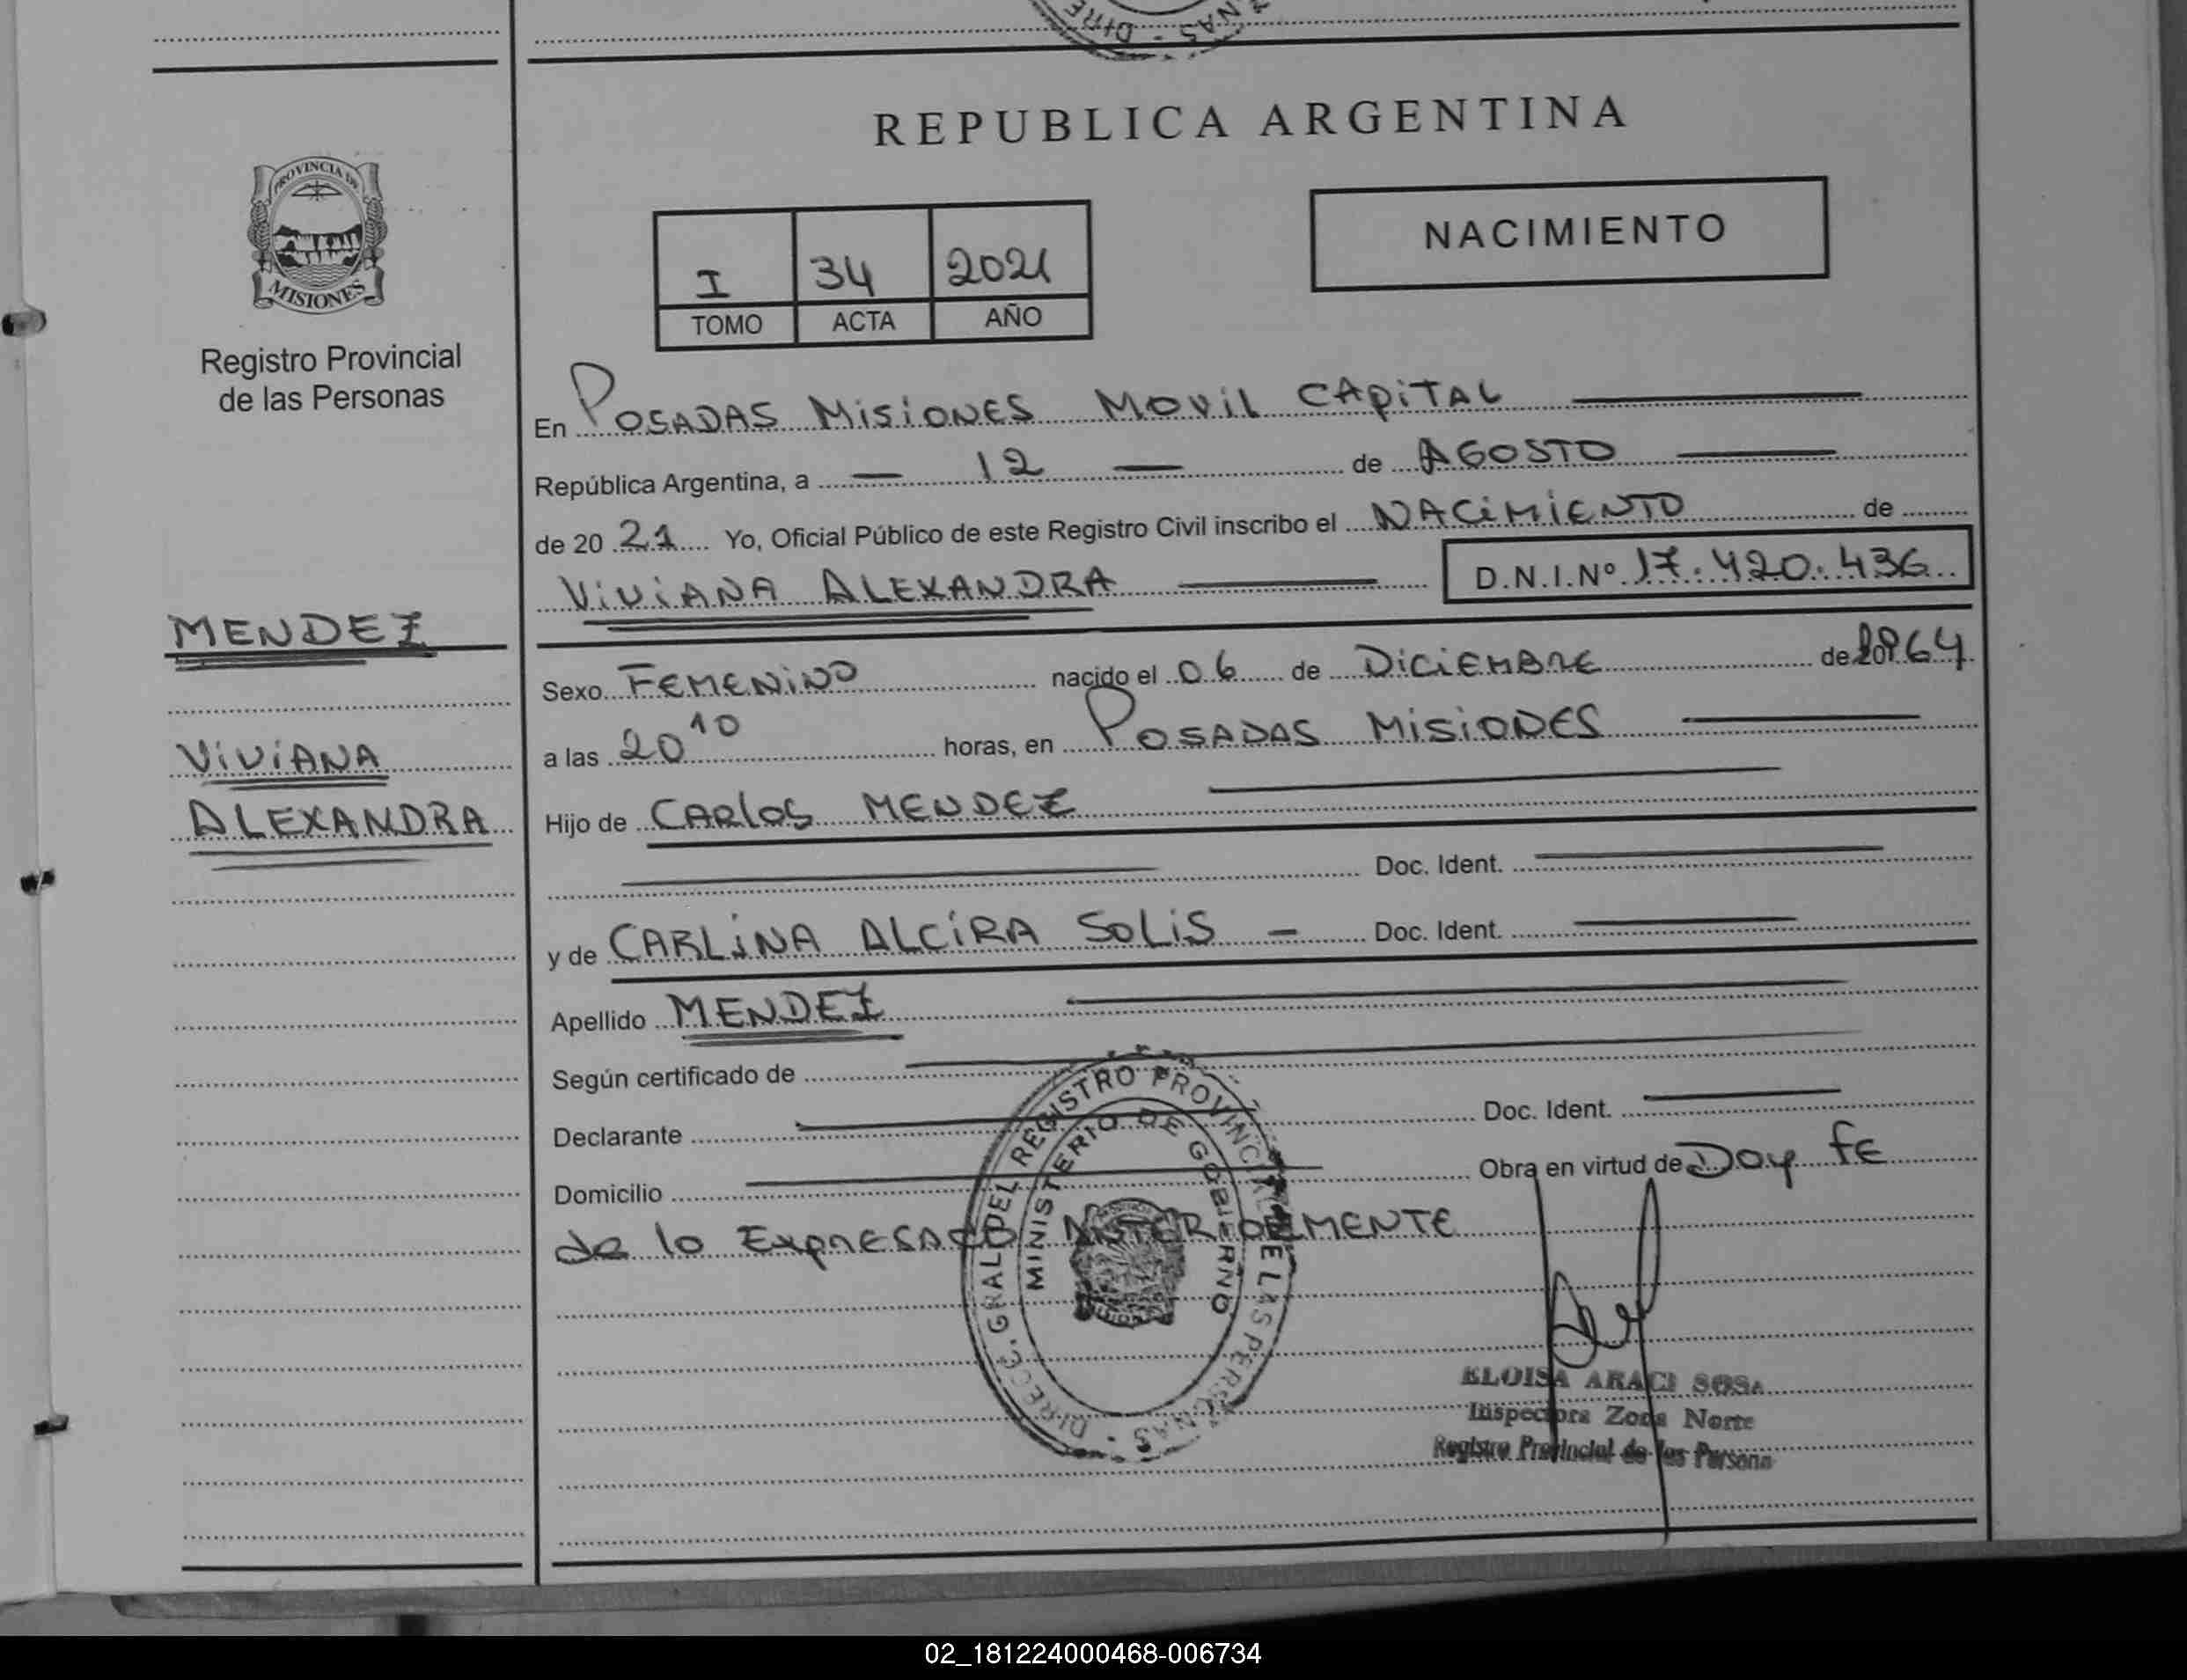 REPUBLICA ARGENTINA
PROVINCIA DE
MISIONES
Registro Provincial
de las Personas
I 34 2021
TOMO ACTA AÑO
NACIMIENTO
En POSADAS MISIONES MOVIL CAPITAL
República Argentina, a 12 de AGOSTO
de 20 21 Yo, Oficial Público de este Registro Civil inscribo el NACIMIENTO de
VIVIANA ALEXANDRA D.N.I.Nº 17.420.436
MENDEZ
Sexo FEMENINO nacido el 06 de DICIEMBRE de 1964
VIVIANA
a las 20 10 horas, en POSADAS MISIONES
ALEXANDRA
Hijo de CARLOS MENDEZ
Doc. Ident.
y de CARLINA ALCIRA SOLIS - Doc. Ident.
Apellido MENDEZ
Según certificado de
Declarante Doc. Ident.
Domicilio Obra en virtud de Doy FE
de lo EXPRESADO ANTERIORMENTE
DIRECC. GRAL. DEL REGISTRO PROVINCIAL DE LAS PERSONAS
MINISTERIO DE GOBIERNO
ELOISA ARACI SOSA
Inspectora Zona Norte
Registro Provincial de las Persona
02_181224000468-006734